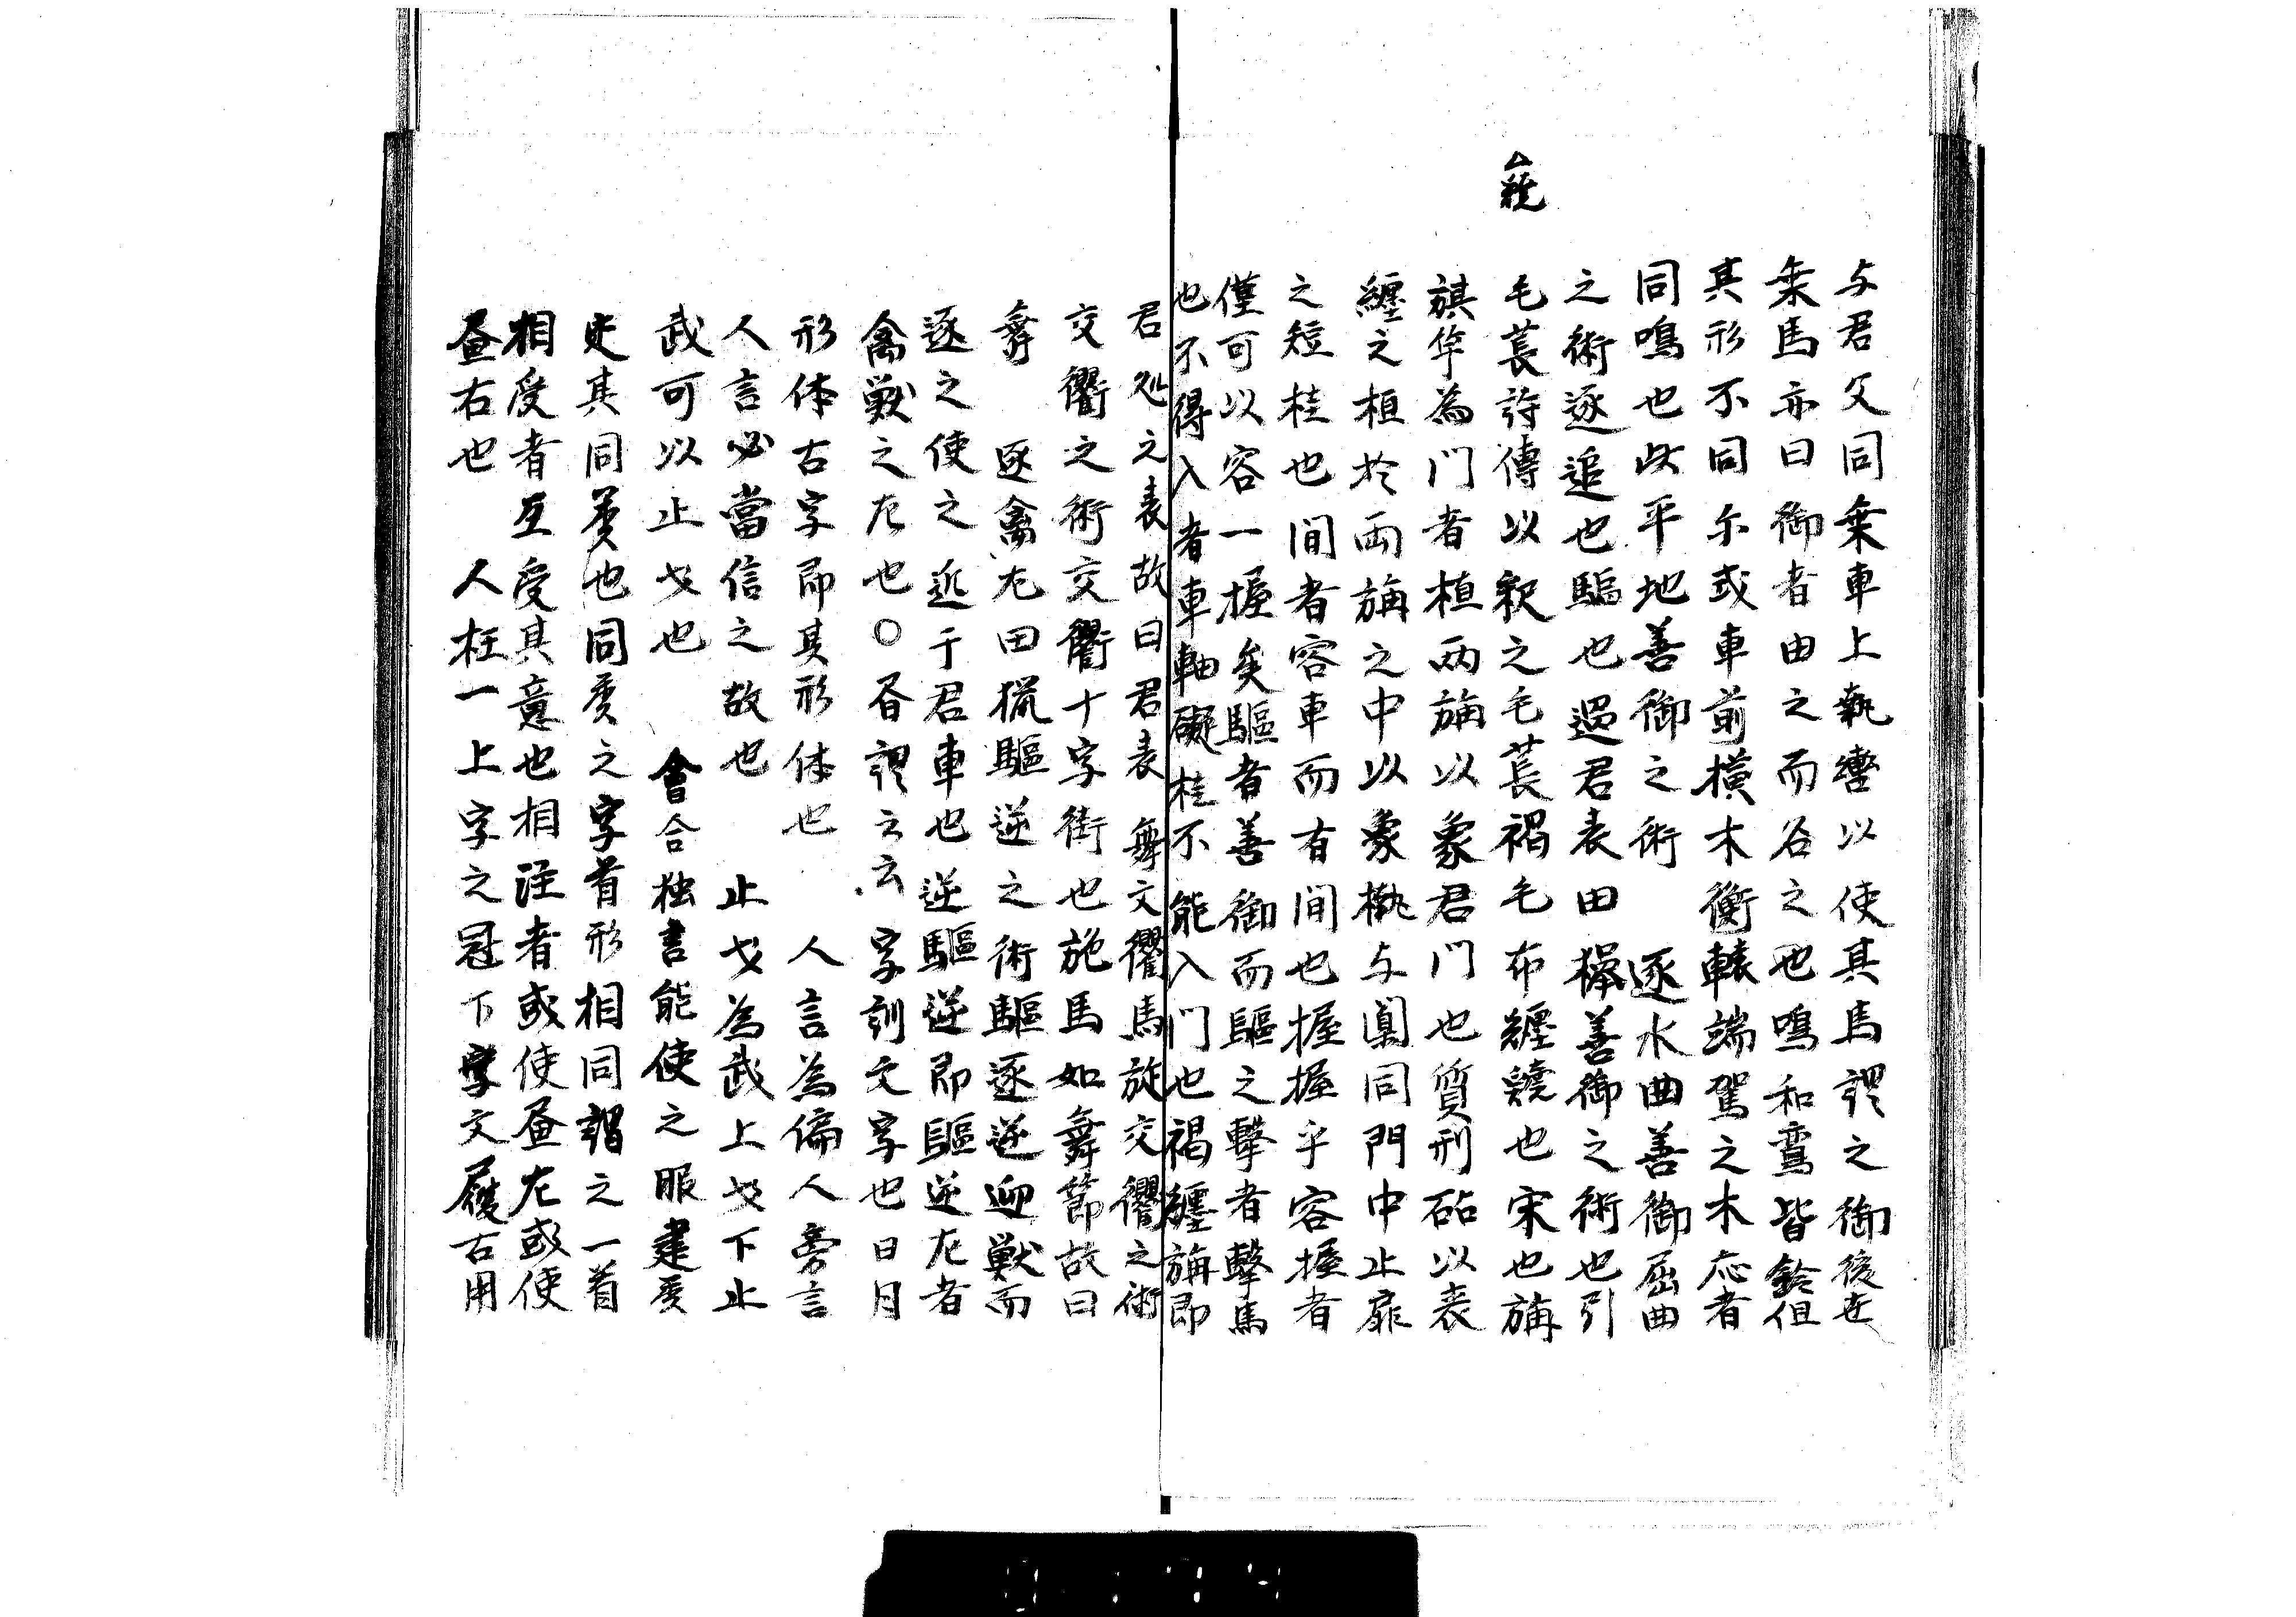 与君父同乗車上執轡以使其馬謂之御後世
乗馬亦曰御者由之而名之也鳴和鸞皆鈴但
其形不同同尓或車前横木衡轅端駕之木応者
同鳴也此平地善御之術　逐水曲善御屈曲
之術逐追也駈也過君表田獵善御之術也引
毛萇詩傳以釈之毛萇褐毛布纒繞也宋也旃
旗竿為門者植兩旃以象君門也質刑砧以表
纒之植於兩旃之中以象槸与闑同門中止扉
之短柱也間者容車而有間也握握乎容握者
僅可以容一握矣驅者善御而驅之擊者擊馬
也不得入者車軸礙柱不能入門也褐纒旃即
君処之表故曰君表　舞交衢馬旋交衢之術
交衢之術交衢十字街也施馬如舞節故曰
舞　逐禽左田猟驅逆之術驅逐逆迎獣而
逐之使之近于君車也逆驅逆即驅逆左者
禽獣之左也〇眉謂云云字訓文字也日月
形体古字即其形体也　人言為偏人旁言
人言必當信之故也　止戈為武上戈下止
武可以止戈也　會合独言能使之服建受
史其同受也同受之字首形相同謂之一首
相受者互受其意也相注者或使昼左或使
昼右也　人在一上字之冠下字文履右用
△繞